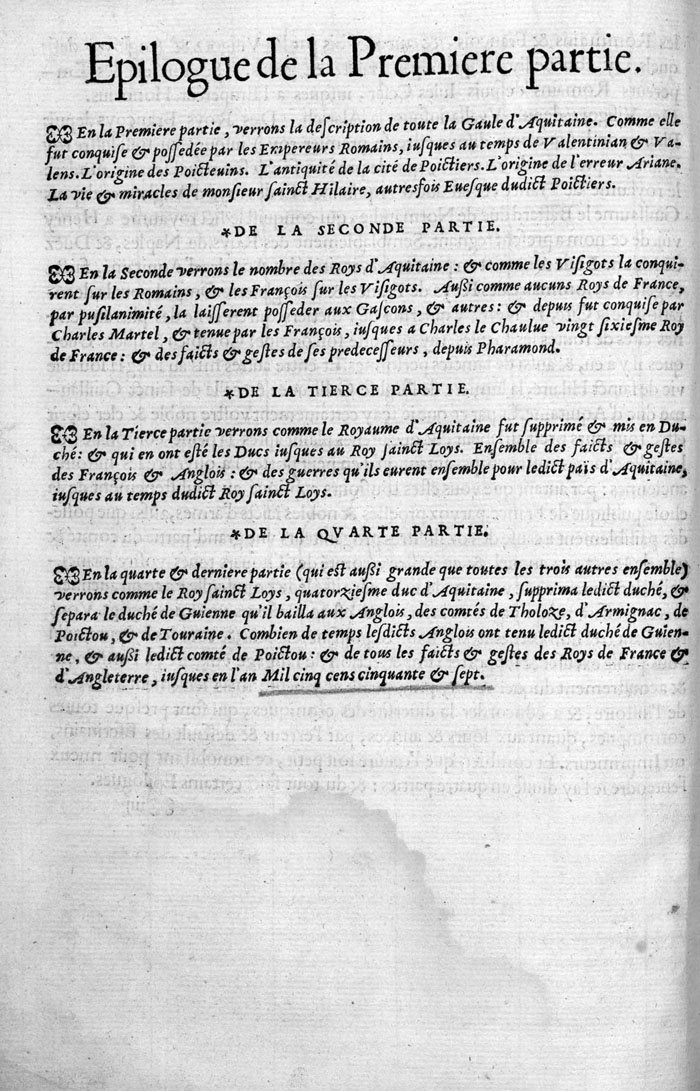 Epilogue de la Premiere partie.
En la Premiere partie, verrons la description de toute la Gaule d'Aquitaine. Comme elle
fut conquise & possedée par les Empereurs Romains, iusques au temps de Valentinian & Va-
lens. L'origine des Poicteuins. L'antiquité de la cité de Poictiers. L'origine de l'erreur Ariane.
La vie & miracles de monsieur sainct Hilaire, autresfois Euesque dudict Poictiers.
*DE LA SECONDE PARTIE.
En la Seconde verrons le nombre des Roys d'Aquitaine: & comme les Visigots la conqui-
rent sur les Romains, & les François sur les Visigots. Aussi comme aucuns Roys de France,
par pusilanimité, la laisserent posseder aux Gascons, & autres: & depuis fut conquise par
Charles Martel, & tenue par les François, iusques a Charles le Chaulue vingt sixiesme Roy
de France: & des faicts & gestes de ses predecesseurs, depuis Pharamond.
*DE LA TIERCE PARTIE.
En la Tierce partie verrons comme le Royaume d'Aquitaine fut supprimé & mis en Du-
ché: & qui en ont esté les Ducs iusques au Roy sainct Loys. Ensemble des faicts & gestes
des François & Anglois: & des guerres qu'ils eurent ensemble pour ledict païs d'Aquitaine,
iusques au temps dudict Roy sainct Loys.
*DE LA QVARTE PARTIE.
En la quarte & derniere partie (qui est aussi grande que toutes les trois autres ensemble)
verrons comme le Roy sainct Loys, quatorziesme duc d'Aquitaine, supprima ledict duché, &
separa le duché de Guienne qu'il bailla aux Anglois, des comtés de Tholoze, d'Armignac, de
Poictou, & de Touraine. Combien de temps lesdicts Anglois ont tenu ledict duché de Guien-
ne, & aussi ledict comté de Poictou: & de tous les faicts & gestes des Roys de France &
d'Angleterre, iusques en l'an Mil cinq cens cinquante & sept.